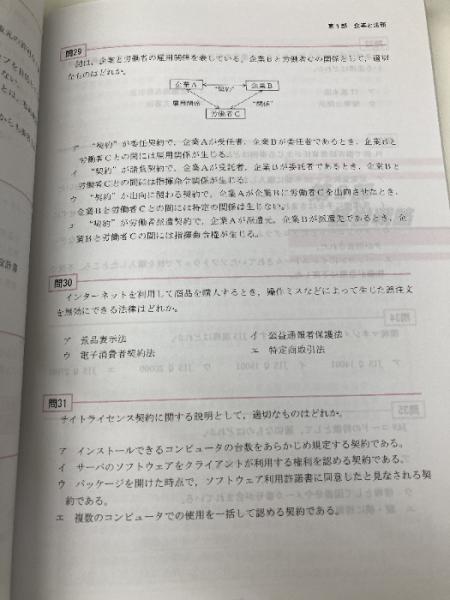 第1部 企業と法務
問29
図は，企業と労働者の雇用関係を表している。企業Bと労働者Cの関係として，適切
なものはどれか。
企業A “契約” 企業B
雇用関係 “関係”
労働者C
ア “契約”が委任契約で，企業Aが受任者，企業Bが委任者であるとき，企業Bと
労働者Cとの間には雇用関係が生じる。
イ “契約”が請負契約で，企業Aが受託者，企業Bが委託者であるとき，企業Bと
労働者Cとの間には指揮命令関係が生じる。
ウ “契約”が出向に関わる契約で，企業Aが企業Bに労働者Cを出向させたとき，
企業Bと労働者Cとの間には特定の関係は生じない。
エ “契約”が労働者派遣契約で，企業Aが派遣元，企業Bが派遣先であるとき，企
業Bと労働者Cの間には指揮命令権が生じる。
問30
インターネットを利用して商品を購入するとき，操作ミスなどによって生じた誤注文
を無効にできる法律はどれか。
ア 景品表示法 イ 公益通報者保護法
ウ 電子消費者契約法 エ 特定商取引法
問31
サイトライセンス契約に関する説明として，適切なものはどれか。
ア インストールできるコンピュータの台数をあらかじめ規定する契約である。
イ サーバのソフトウェアをクライアントが利用する権利を認める契約である。
ウ パッケージを開けた時点で，ソフトウェア利用許諾書に同意したと見なされる契
約である。
エ 複数のコンピュータでの使用を一括して認める契約である。